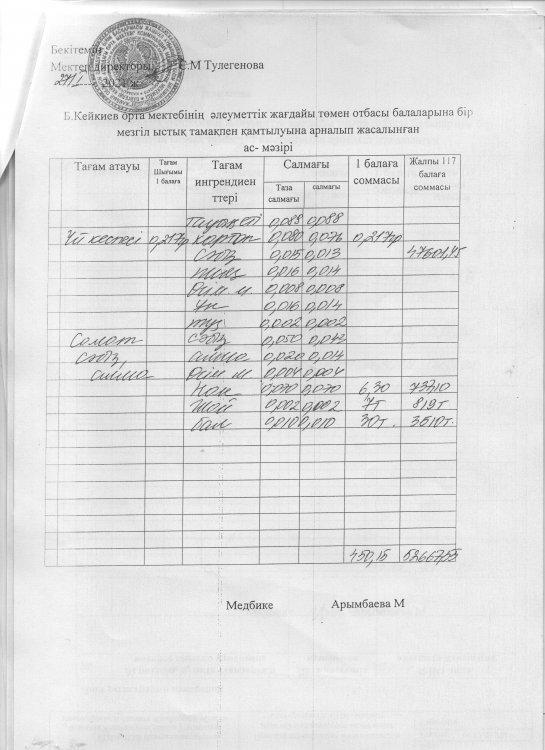 Бекітемін
Мектеп директоры С.М Тулегенова
27/1 2021 ж
Б.Кейкиев орта мектебінің әлеуметтік жағдайы төмен отбасы балаларына бір
мезгіл ыстық тамақпен қамтылуына арналып жасалынған
ас- мәзірі
Тағам атауы Тағам Шығымы 1 балаға Тағам ингрендиен ттері Салмағы Таза салмағы салмағы 1 балаға соммасы Жалпы 117 балаға соммасы
0,088 0,088
Үй кеспесі 0,217гр картоп 0,080 0,076 0,217гр
сәбіз 0,015 0,013 47601,45
пияз 0,016 0,014
Өсім м 0,008 0,008
ұн 0,016 0,014
тұз 0,002 0,002
Салат сәбіз 0,050 0,042
сәбіз, алма 0,020 0,014
алма Өсім м 0,004 0,004
Нан 0,070 0,070 6,30 737,10
Шай 0,002 0,002 7т 819т
бал 0,010 0,010 30т. 3510т.
450,15
Медбике Арымбаева М